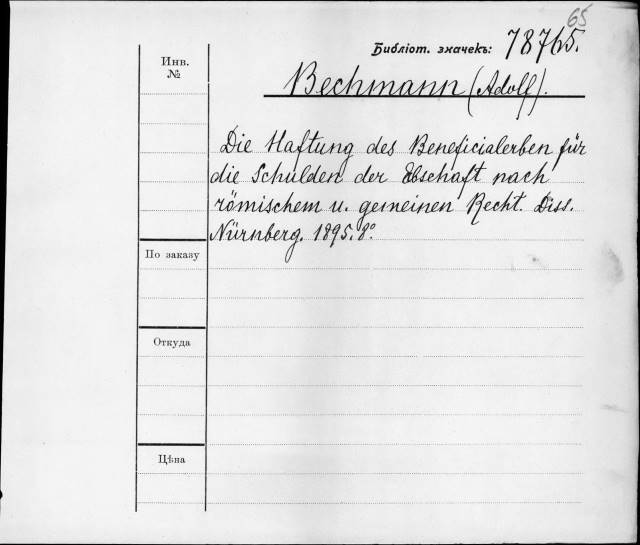 65
Библіот. значекъ: 78765.
Инв.
№
Bechmann (Adolf).
Die Haftung des Beneficialerben für
die Schulden der Ebschaft nach
römischem u. gemeinen Recht. Diss.
Nürnberg. 1895. 8°.
По заказу
Откуда
Цѣна